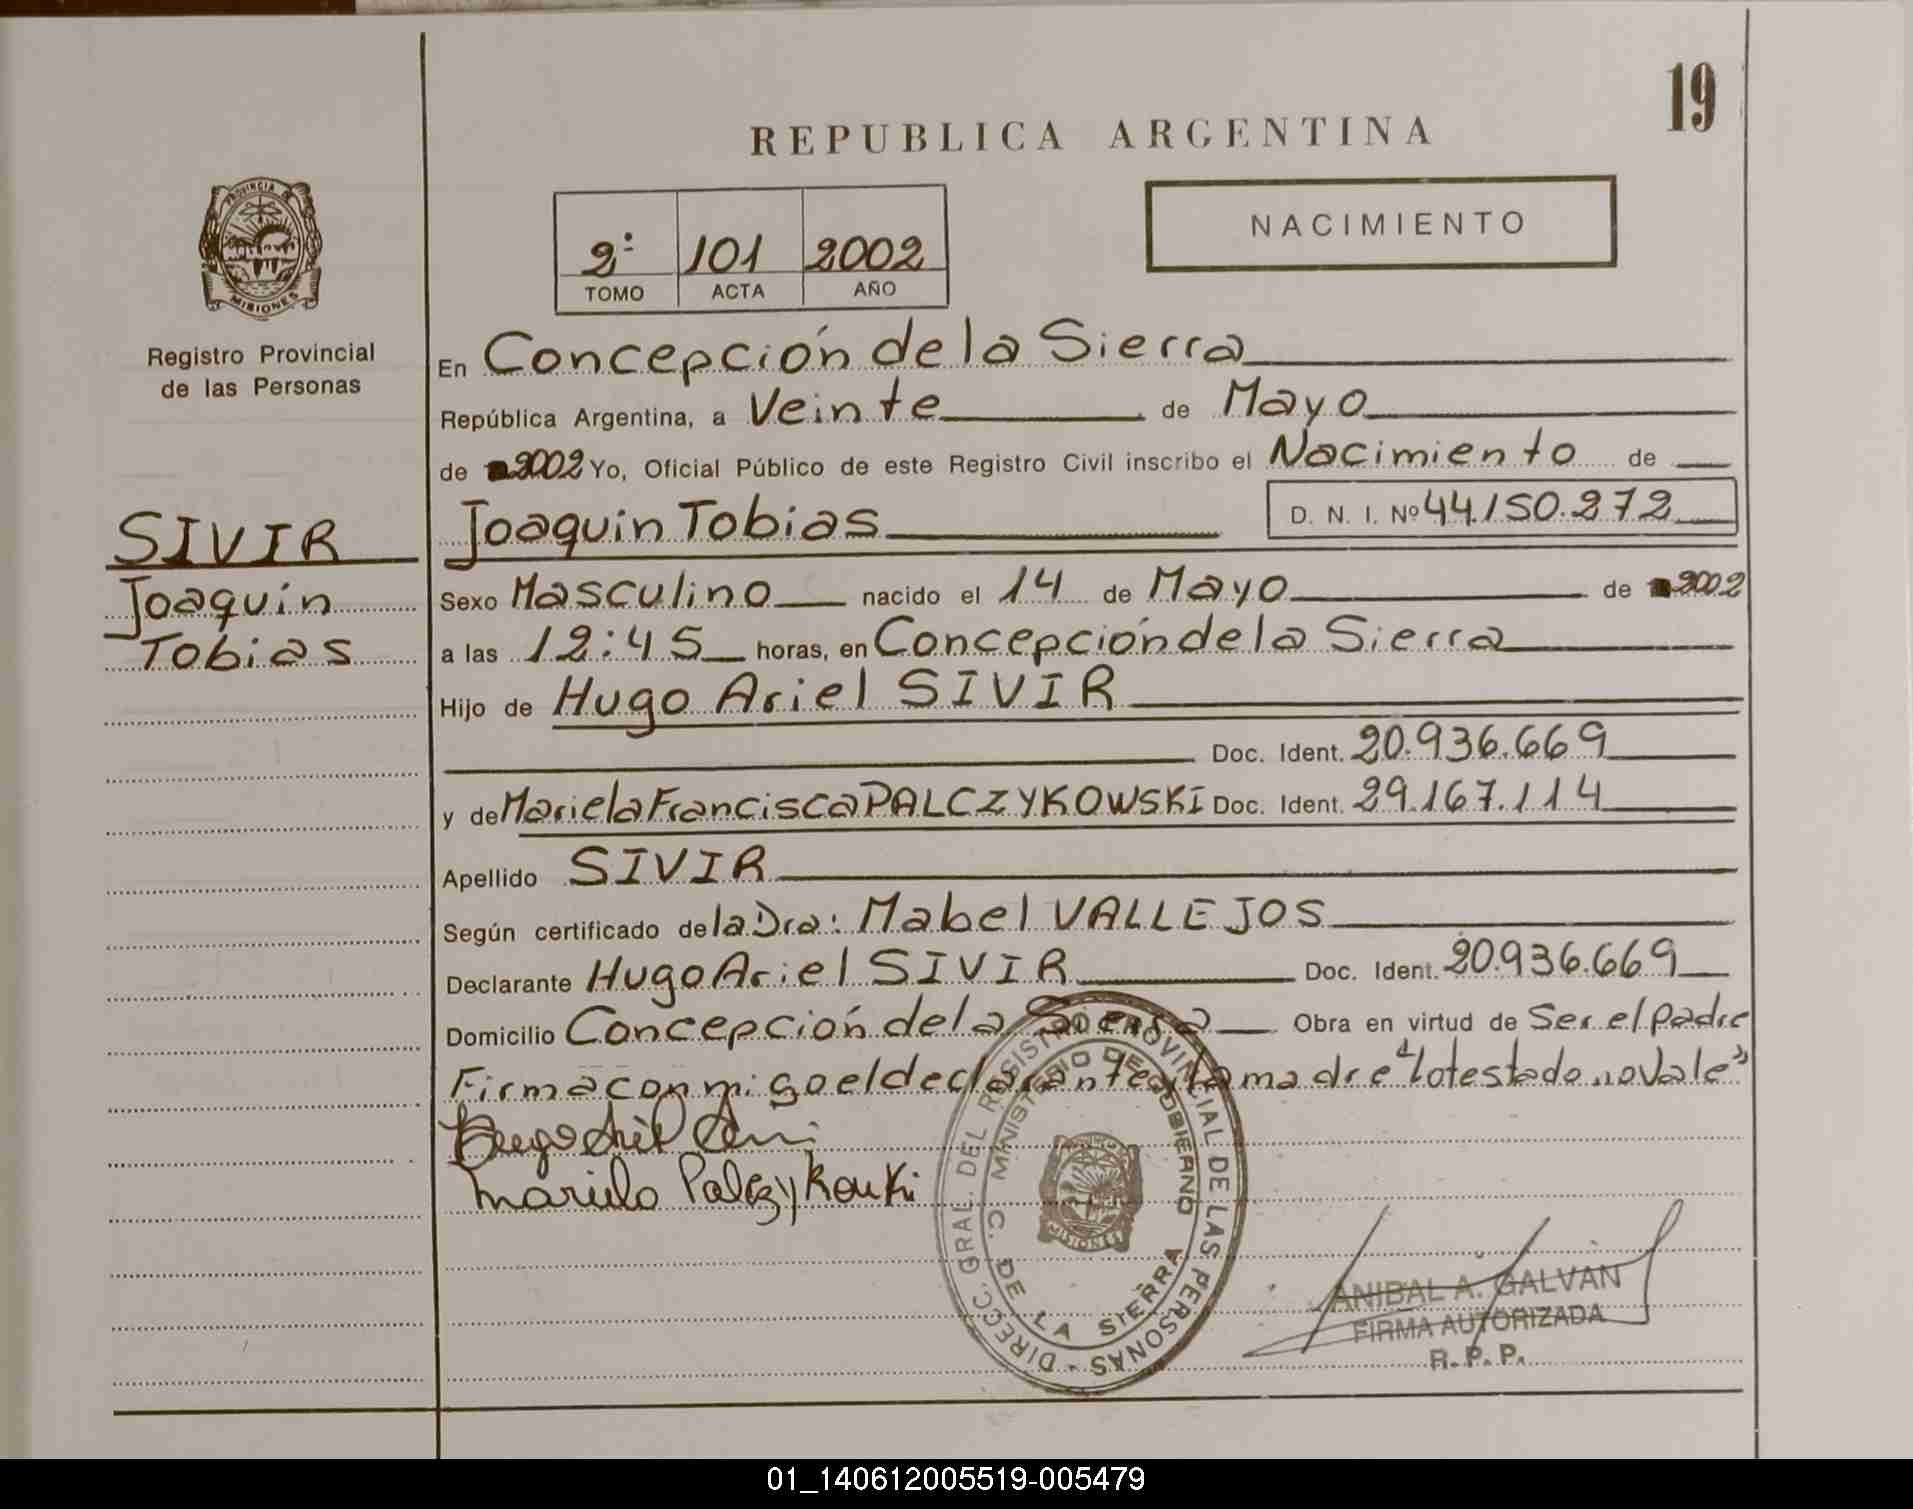 19
REPUBLICA ARGENTINA
PROVINCIA
MISIONES
Registro Provincial
de las Personas
2º 101 2002
TOMO ACTA AÑO
NACIMIENTO
En Concepción de la Sierra
República Argentina, a Veinte de Mayo
de 2002 Yo, Oficial Público de este Registro Civil inscribo el Nacimiento de
SIVIR
Joaquin
Tobias
Joaquin Tobias D. N. I. Nº 44.150.272
Sexo Masculino nacido el 14 de Mayo de 2002
a las 12:45 horas, en Concepción de la Sierra
Hijo de Hugo Ariel SIVIR
Doc. Ident. 20.936.669
y de Mariela Francisca PALCZYKOWSKI Doc. Ident. 29.167.114
Apellido SIVIR
Según certificado de la Dra: Mabel VALLEJOS
Declarante Hugo Ariel SIVIR Doc. Ident. 20.936.669
Domicilio Concepción de la Sierra Obra en virtud de Ser el padre
Firma conmigo el declarante y la madre "lo testado no vale"
Mariela Palczykouki
DIRECC. GRAL. DEL REGISTRO PROVINCIAL DE LAS PERSONAS -
MINISTERIO DE GOBIERNO
C. DE LA SIERRA
MISIONES
ANIBAL A. GALVAN
FIRMA AUTORIZADA
R. P. P.
01_140612005519-005479